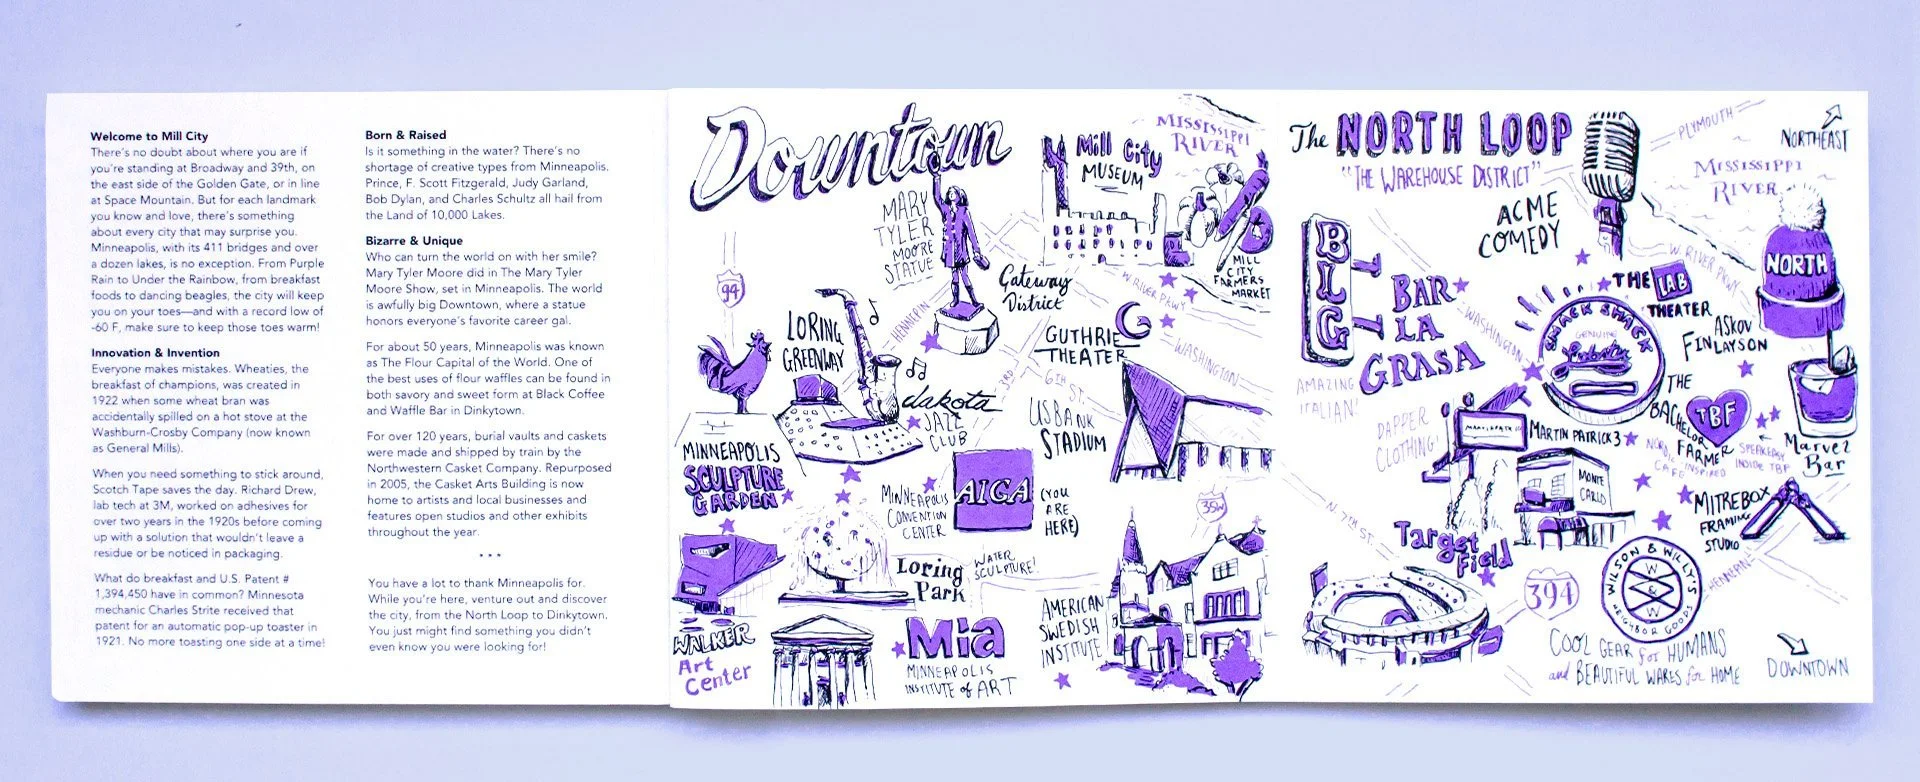 Welcome to Mill City
There's no doubt about where you are if
you're standing at Broadway and 39th, on
the east side of the Golden Gate, or in line
at Space Mountain. But for each landmark
you know and love, there's something
about every city that may surprise you.
Minneapolis, with its 411 bridges and over
a dozen lakes, is no exception. From Purple
Rain to Under the Rainbow, from breakfast
foods to dancing beagles, the city will keep
you on your toes—and with a record low of
-60 F, make sure to keep those toes warm!
Innovation & Invention
Everyone makes mistakes. Wheaties, the
breakfast of champions, was created in
1922 when some wheat bran was
accidentally spilled on a hot stove at the
Washburn-Crosby Company (now known
as General Mills).
When you need something to stick around,
Scotch Tape saves the day. Richard Drew,
lab tech at 3M, worked on adhesives for
over two years in the 1920s before coming
up with a solution that wouldn't leave a
residue or be noticed in packaging.
What do breakfast and U.S. Patent #
1,394,450 have in common? Minnesota
mechanic Charles Strite received that
patent for an automatic pop-up toaster in
1921. No more toasting one side at a time!
Born & Raised
Is it something in the water? There's no
shortage of creative types from Minneapolis.
Prince, F. Scott Fitzgerald, Judy Garland,
Bob Dylan, and Charles Schultz all hail from
the Land of 10,000 Lakes.
Bizarre & Unique
Who can turn the world on with her smile?
Mary Tyler Moore did in The Mary Tyler
Moore Show, set in Minneapolis. The world
is awfully big Downtown, where a statue
honors everyone's favorite career gal.
For about 50 years, Minneapolis was known
as The Flour Capital of the World. One of
the best uses of flour waffles can be found in
both savory and sweet form at Black Coffee
and Waffle Bar in Dinkytown.
For over 120 years, burial vaults and caskets
were made and shipped by train by the
Northwestern Casket Company. Repurposed
in 2005, the Casket Arts Building is now
home to artists and local businesses and
features open studios and other exhibits
throughout the year.
* * *
You have a lot to thank Minneapolis for.
While you're here, venture out and discover
the city, from the North Loop to Dinkytown.
You just might find something you didn't
even know you were looking for!
Downtown
MARY
TYLER
MOORE
STATUE
Mill City
MUSEUM
MISSISSIPPI
RIVER
MILL
CITY
FARMERS
MARKET
94
LORING
GREENWAY
HENNEPIN
Gateway
District
W RIVER PKWY
GUTHRIE
THEATER
WASHINGTON
3RD
6TH ST.
dakota
JAZZ
CLUB
US BANK
STADIUM
MINNEAPOLIS
SCULPTURE
GARDEN
MINNEAPOLIS
CONVENTION
CENTER
AIGA
(YOU
ARE
HERE)
35W
Loring
Park
WATER
SCULPTURE!
WALKER
Art
Center
Mia
MINNEAPOLIS
INSTITUTE of ART
AMERICAN
SWEDISH
INSTITUTE
The NORTH LOOP
"THE WAREHOUSE DISTRICT"
ACME
COMEDY
PLYMOUTH
NORTHEAST
MISSISSIPPI
RIVER
W. RIVER PKWY
NORTH
BLG
BAR
LA
GRASA
AMAZING
ITALIAN!
WASHINGTON
THE LAB
THEATER
SMACK SHACK
GENUINE
Lobster
ASKOV
FINLAYSON
DAPPER
CLOTHING!
MARTIN PATRICK 3
THE
BACHELOR
FARMER
TBF
NORDIC
INSPIRED
CAFE
SPEAKEASY
INSIDE TBF
Marvel
Bar
MONTE
CARLO
MITREBOX
FRAMING
STUDIO
N. 7TH ST.
Target
Field
394
WILSON & WILLY'S
W & W
NEIGHBOR GOODS
HENNEPIN
COOL GEAR for HUMANS
and BEAUTIFUL WARES for HOME
DOWNTOWN